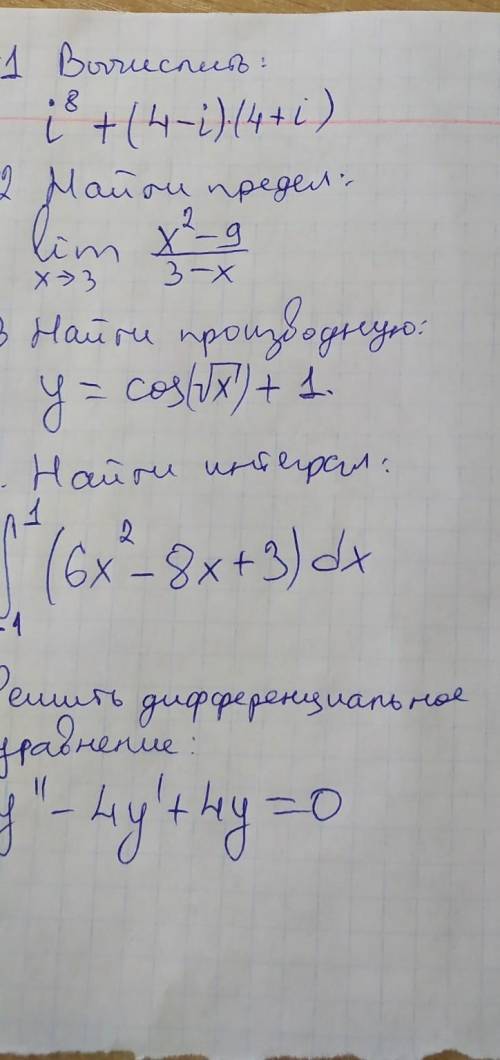 1 Вычислить:
i⁸ + (4-i)·(4+i)
2 Найти предел:
lim x→3 (x²-9)/(3-x)
3 Найти производную:
y = cos(√x) + 1.
. Найти интеграл:
∫₋₁¹ (6x² - 8x + 3) dx
Решить дифференциальное
уравнение:
y'' - 4y' + 4y = 0